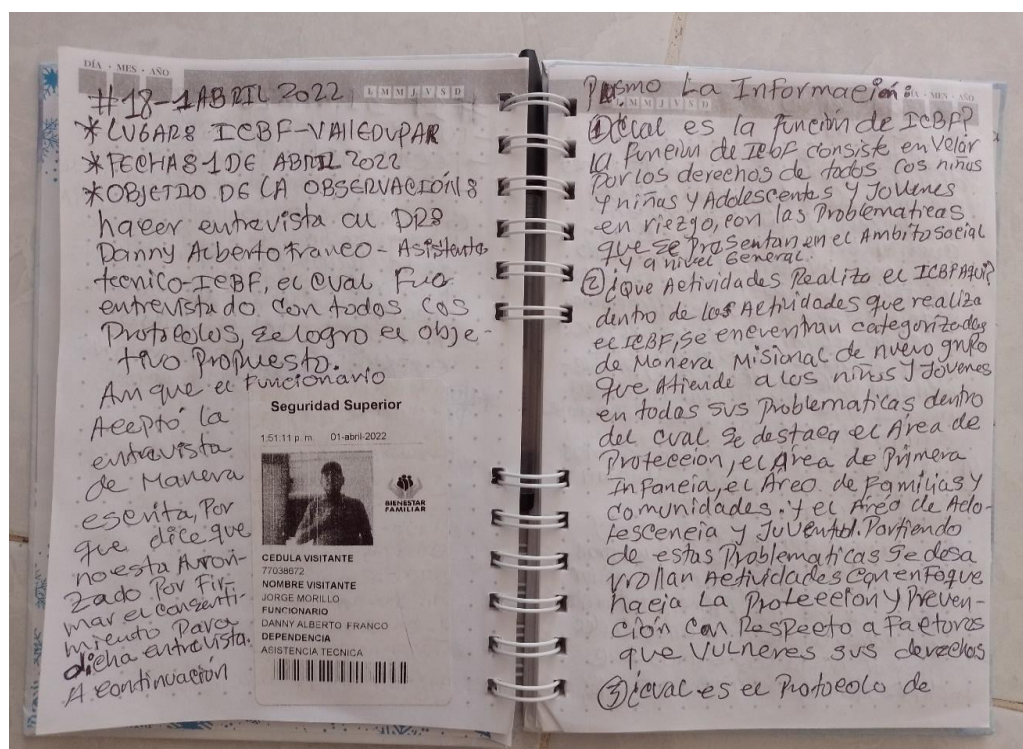 DÍA · MES · AÑO
L M M J V S D
#18-1 ABRIL 2022
*LUGAR: ICBF-VAllEDUPAR
*FECHA: 1 DE ABRIL 2022
*OBJETIVO DE LA OBSERVACIÓN:
hacer entrevista al DR:
Danny Alberto Franco - Asistente
tecnico-ICBF, el cual Fue
entrevistado con todos los
Protocolos, se logro el obje-
tivo Propuesto.
Aunque el Funcionario
Aceptó la
entrevista
de Manera
escrita, Por
que dice que
no esta Autori-
zado Por Fir-
mar el consenti-
miento Para
dicha entrevista.
A continuación
Seguridad Superior
1:51:11 p.m. 01-abril-2022
BIENESTAR
FAMILIAR
CEDULA VISITANTE
77038672
NOMBRE VISITANTE
JORGE MORILLO
FUNCIONARIO
DANNY ALBERTO FRANCO
DEPENDENCIA
ASISTENCIA TECNICA
Plasmo La Información:
L M M J V S D
① ¿Cual es la función de ICBF?
la función de ICBF consiste en Velar
Por los derechos de todos los niños
y niñas y Adolescentes y Jovenes
en riezgo, con las Problematicas
que se Presentan en el Ambito Social
y a nivel General.
② ¿Que Actividades Realiza el ICBF AQUI?
dentro de las Actividades que realiza
el ICBF, se encuentran categorizadas
de Manera Misional de nuevo grupo
que Atiende a los niños y Jovenes
en todas sus Problematicas dentro
del cual se destaca el Área de
Protección, el Área de Primera
Infancia, el Área de Familias y
comunidades. y el Área de Ado-
lescencia y Juventud. Partiendo
de estas Problematicas se desa
rrollan Actividades con enfoque
hacia La Protección y Preven-
ción con Respecto a Factores
que Vulneres sus derechos
③ ¿cual es el Protocolo de